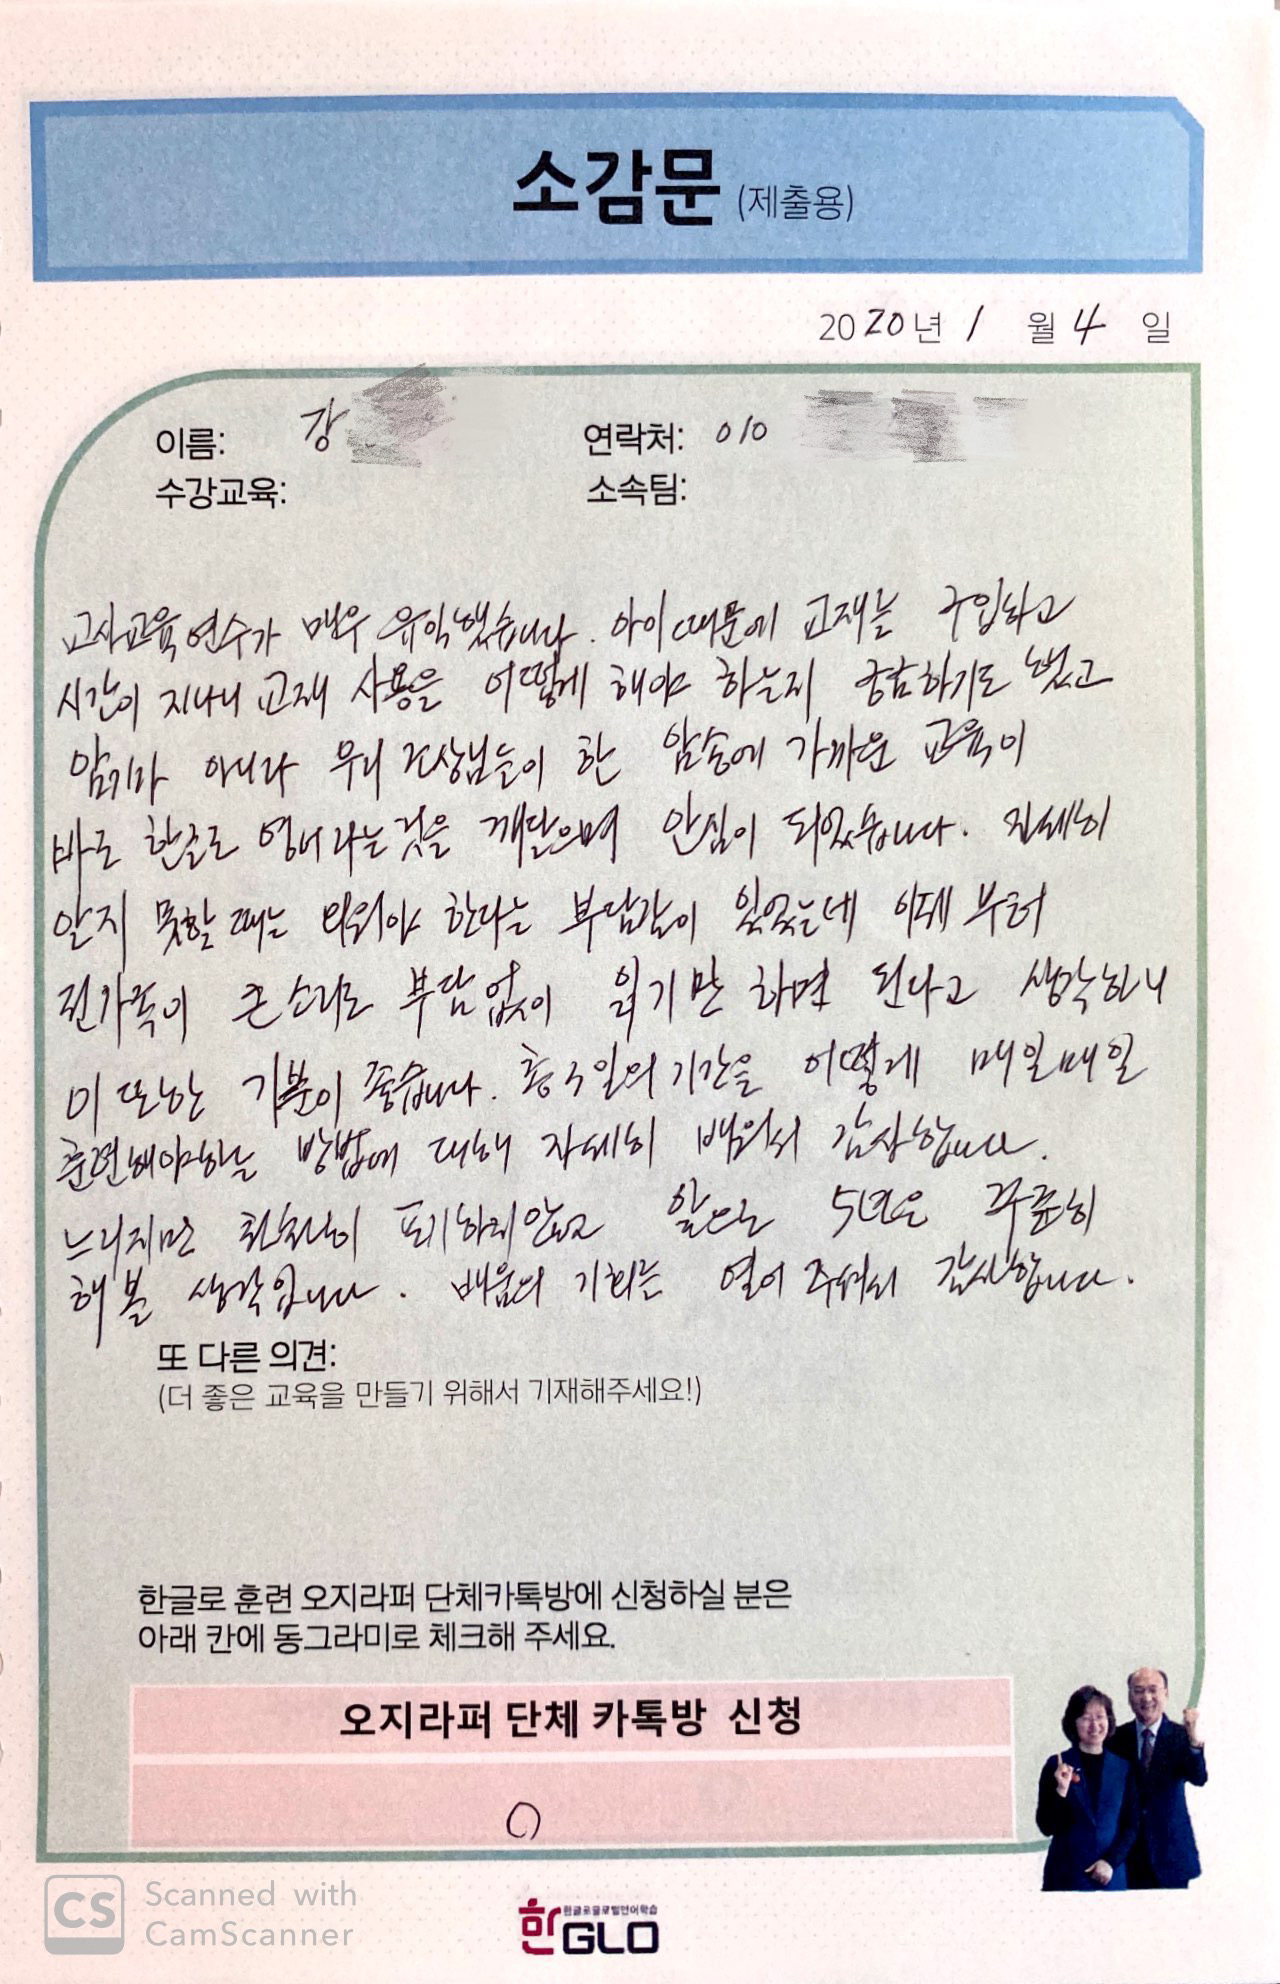 소감문 (제출용)
2020년 1월 4일
이름: 강
연락처: 010
수강교육:
소속팀:
교사교육연수가 매우 유익했습니다. 아이때문에 교재를 구입하고
시간이 지나니 교재 사용을 어떻게 해야 하는지 궁금하기도 했고
암기가 아니라 우리 조상님들이 한 암송에 가까운 교육이
바로 한글로 영어라는것을 깨달으며 안심이 되었습니다. 자세히
알지 못할 때는 외워야 한다는 부담감이 있었는데 이제부터
전가족이 큰소리로 부담없이 읽기만 하면 된다고 생각하니
이 또한 기분이 좋습니다. 총 3일의 기간을 어떻게 매일매일
훈련해야하는 방법에 대해 자세히 배워서 감사합니다.
느리지만 천천히 포기하지않고 일단 5년은 꾸준히
해볼 생각입니다. 배움의 기회를 열어 주셔서 감사합니다.
또 다른 의견:
(더 좋은 교육을 만들기 위해서 기재해주세요!)
한글로 훈련 오지라퍼 단체카톡방에 신청하실 분은
아래 칸에 동그라미로 체크해 주세요.
오지라퍼 단체 카톡방 신청
O
CS Scanned with
CamScanner
한글로글로벌언어학습
한GLO